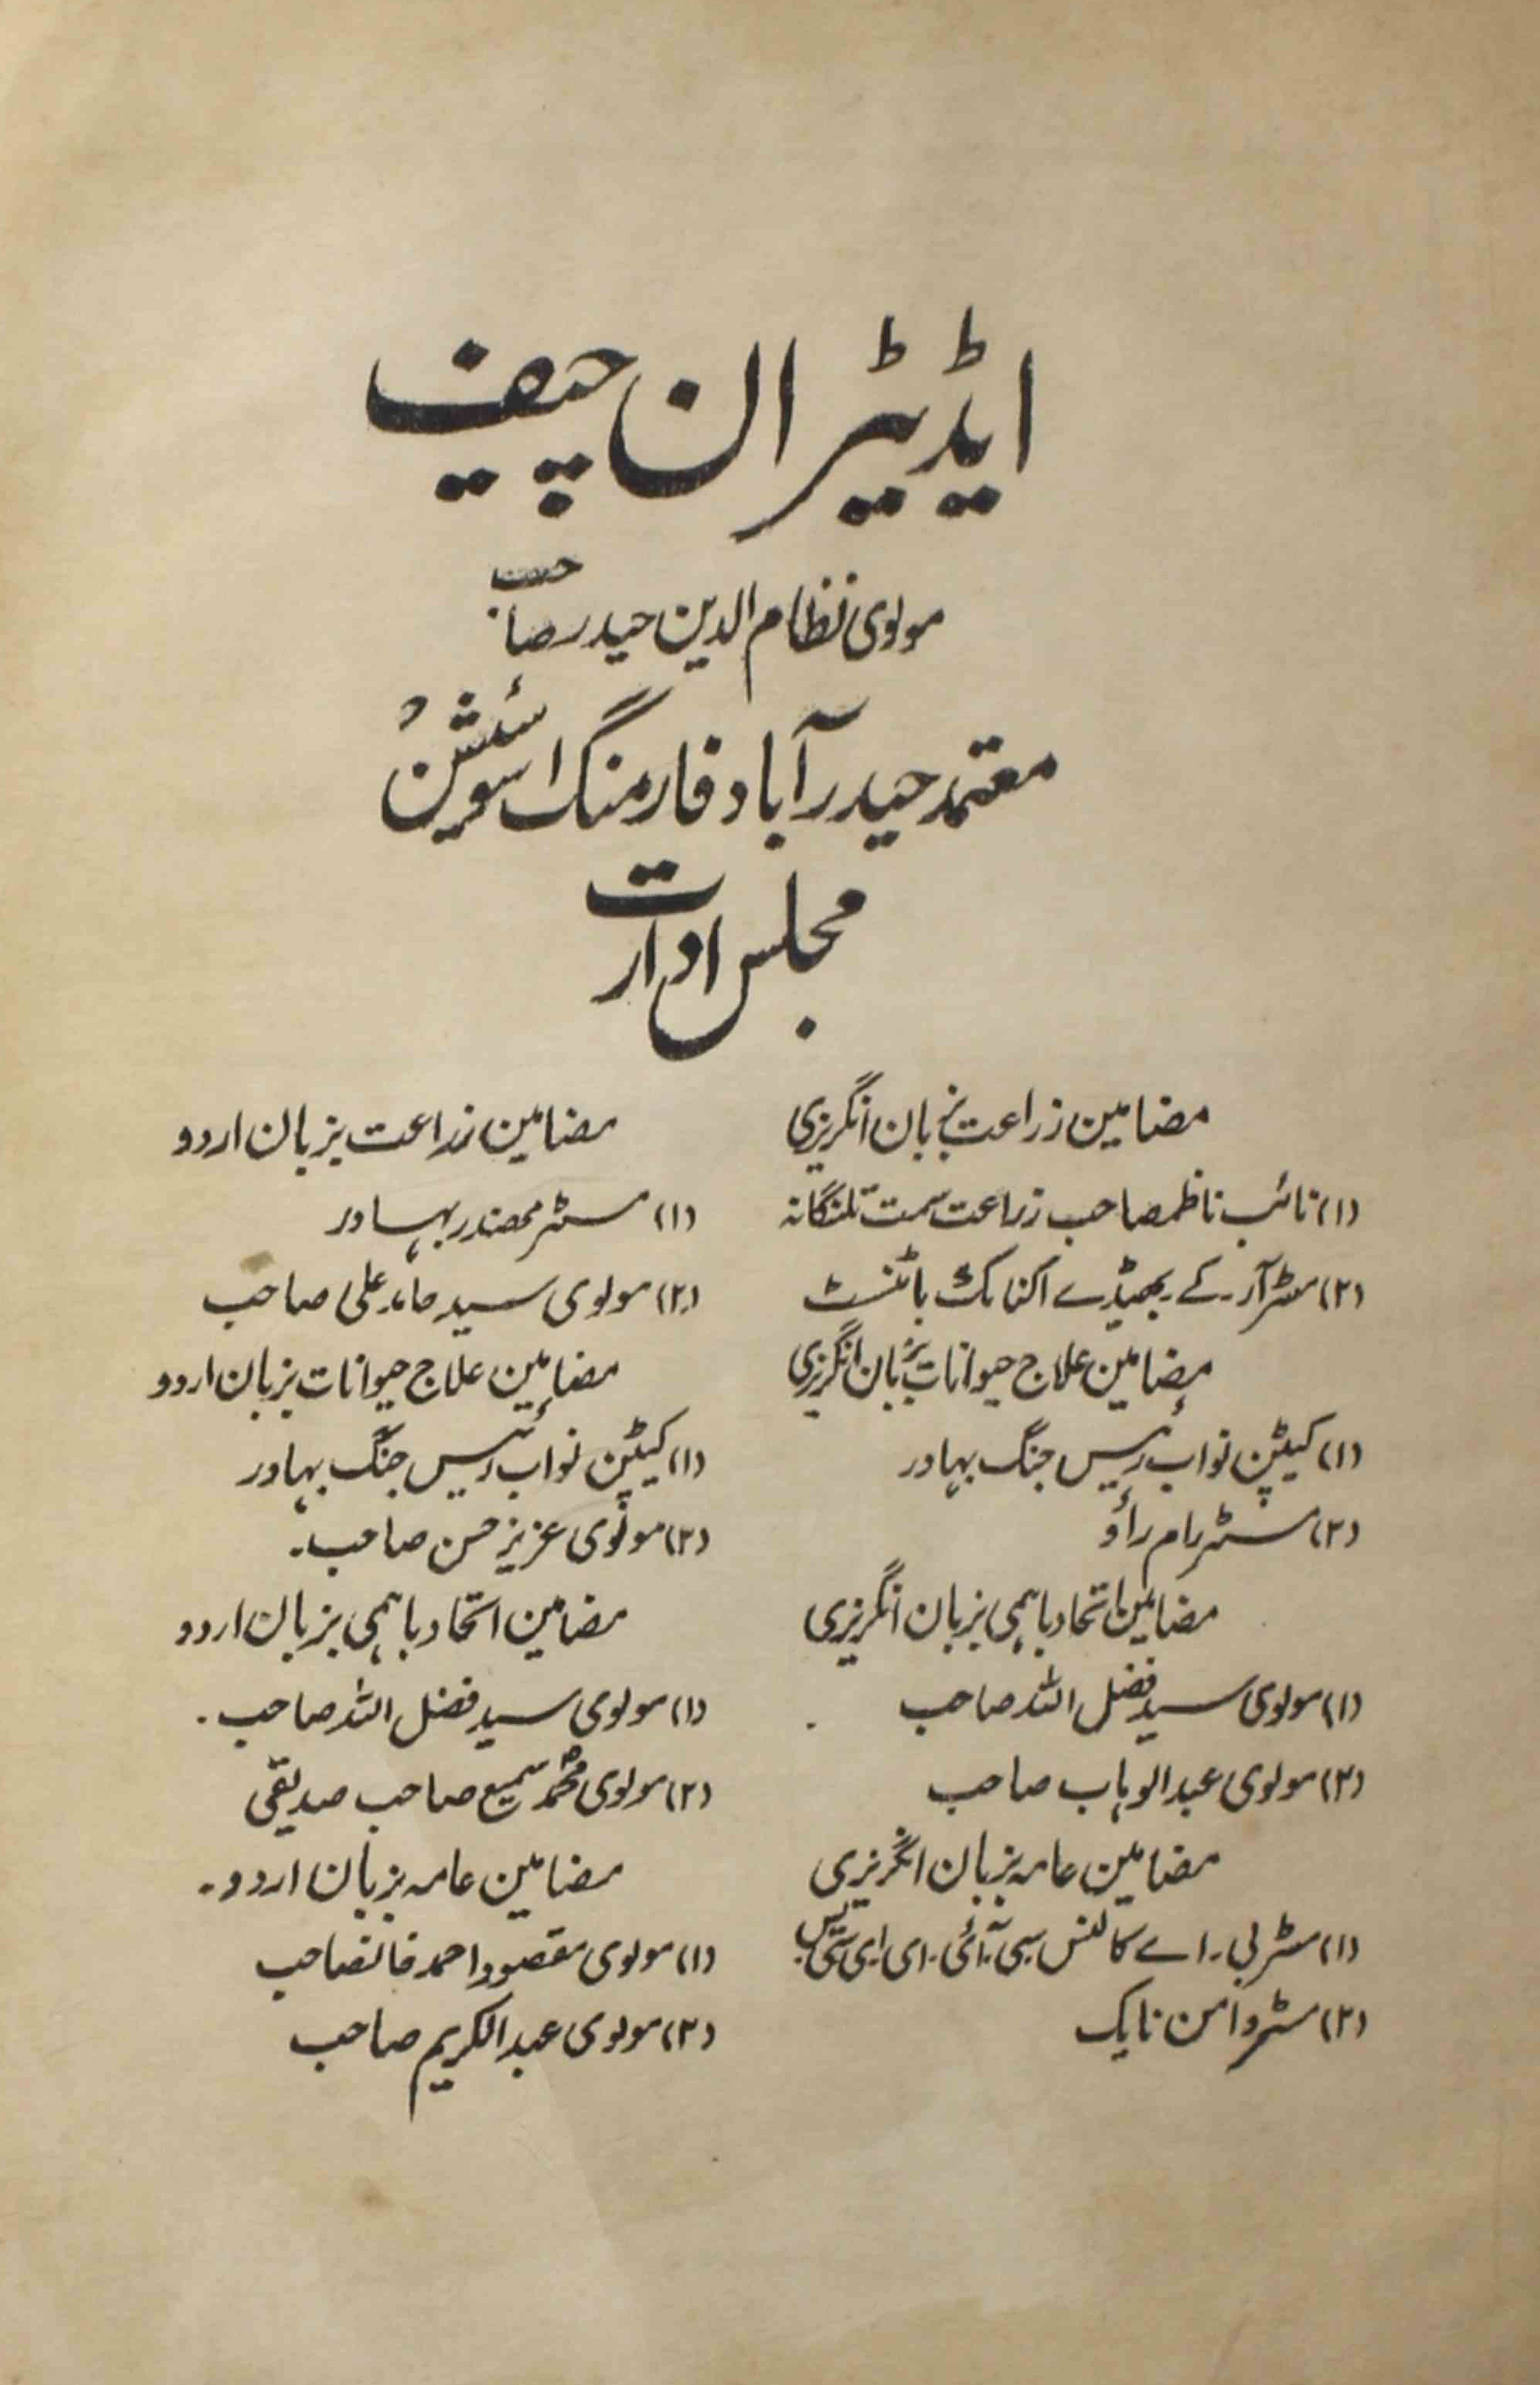 ایڈیٹر ان چیف
مولوی نظام الدین حیدر صاحب
معتمد حیدرآباد فارمنگ اسوسئیشن
مجلس ادارت
مضامین زراعت بزبان انگریزی
(۱) نائب ناظم صاحب زراعت سمت تلنگانہ
(۲) مسٹر آر۔ کے۔ بھیڈے اکنامک باٹنسٹ
مضامین علاج حیوانات بزبان انگریزی
(۱) کیپٹن نواب رئیس جنگ بہادر
(۲) مسٹر رام راؤ
مضامین اتحاد باہمی بزبان انگریزی
(۱) مولوی سید فضل اللہ صاحب
(۲) مولوی عبدالوہاب صاحب
مضامین عامہ بزبان انگریزی
(۱) مسٹر بی۔ اے کالنس سی۔ آئی۔ ای۔ آئی۔ سی۔ یس۔
(۲) مسٹر وامن نایک
مضامین زراعت بزبان اردو
(۱) مسٹر بہادر
(۲) مولوی سید حامد علی صاحب
مضامین علاج حیوانات بزبان اردو
(۱) کیپٹن نواب رئیس جنگ بہادر
(۲) مولوی عزیز حسن صاحب۔
مضامین اتحاد باہمی بزبان اردو
(۱) مولوی سید فضل اللہ صاحب۔
(۲) مولوی محمد سمیع صاحب صدیقی
مضامین عامہ بزبان اردو۔
(۱) مولوی مقصود احمد خانصاحب
(۲) مولوی عبدالکریم صاحب